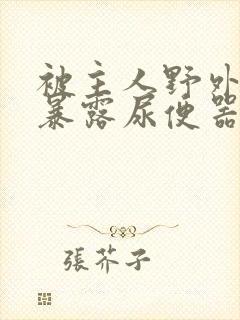 被主人野外
暴露尿便器
張芥子